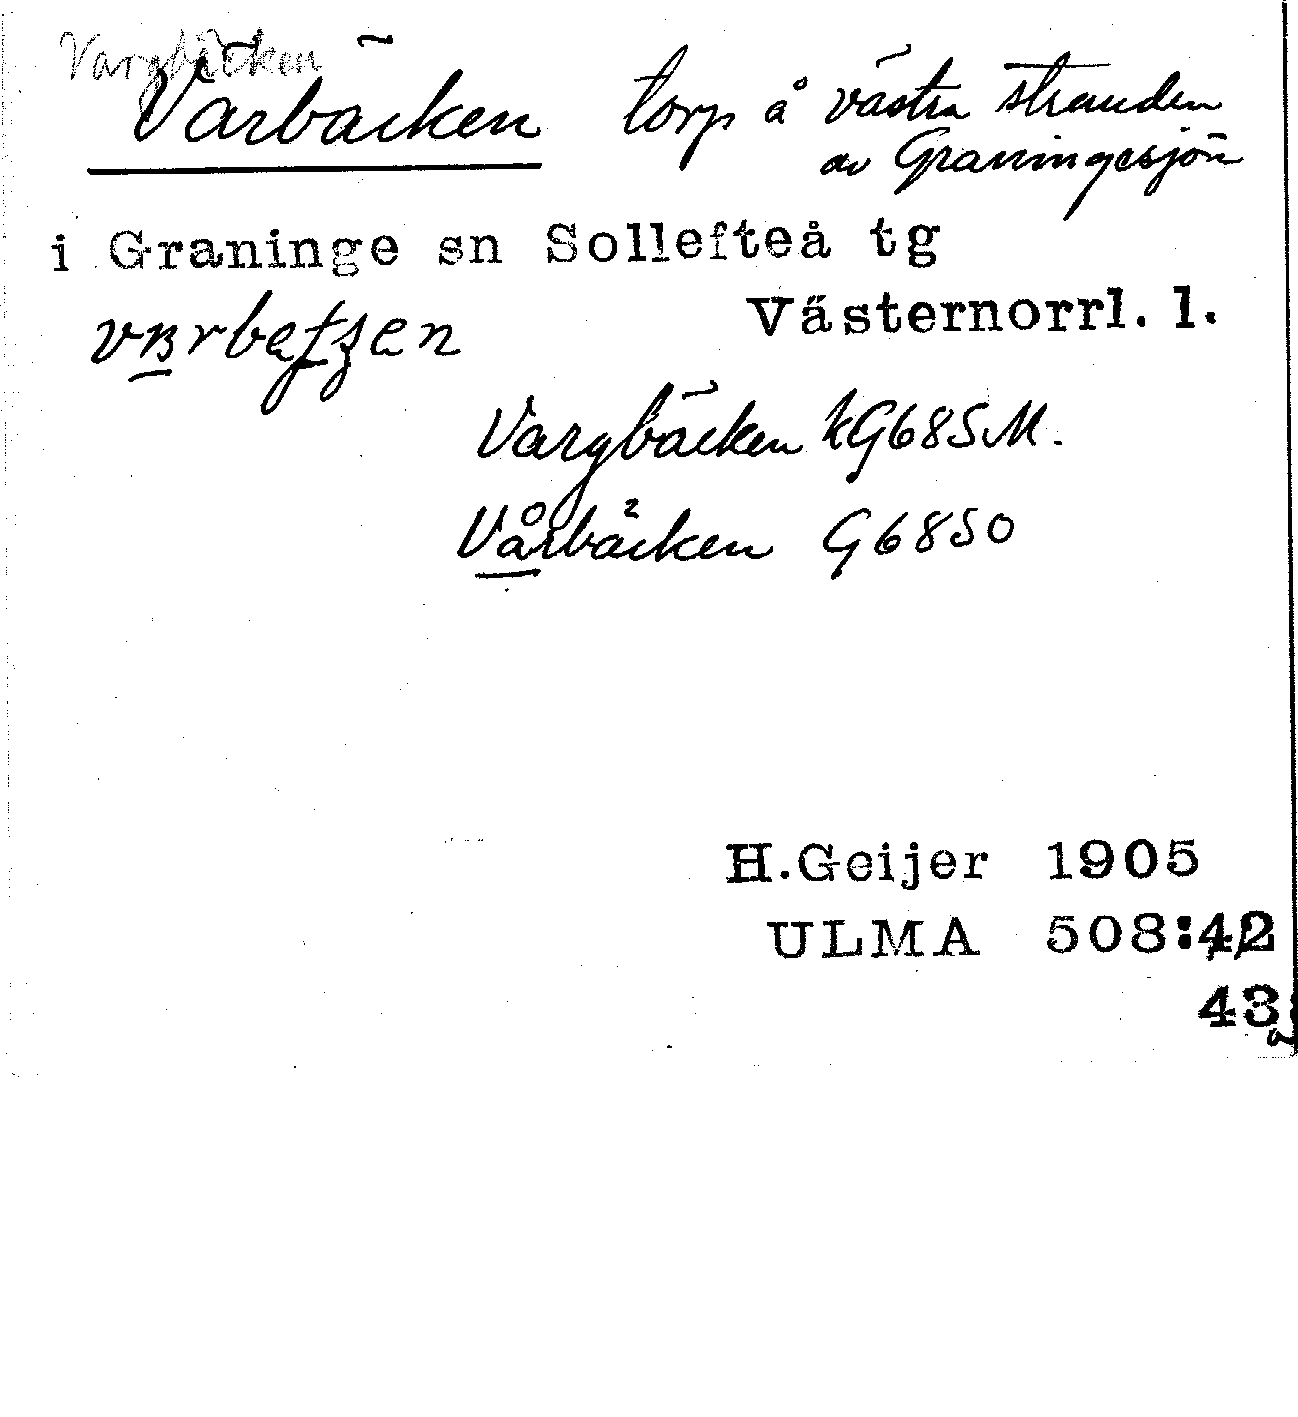 Vargbäcken
Varbäcken torp å västra stranden
av Graningesjön
i Graninge sn Sollefteå tg
Västernorrl. l.
Vargbäcken kG685M.
Vårbäcken G6850
H.Geijer 1905
ULMA 508:42
43